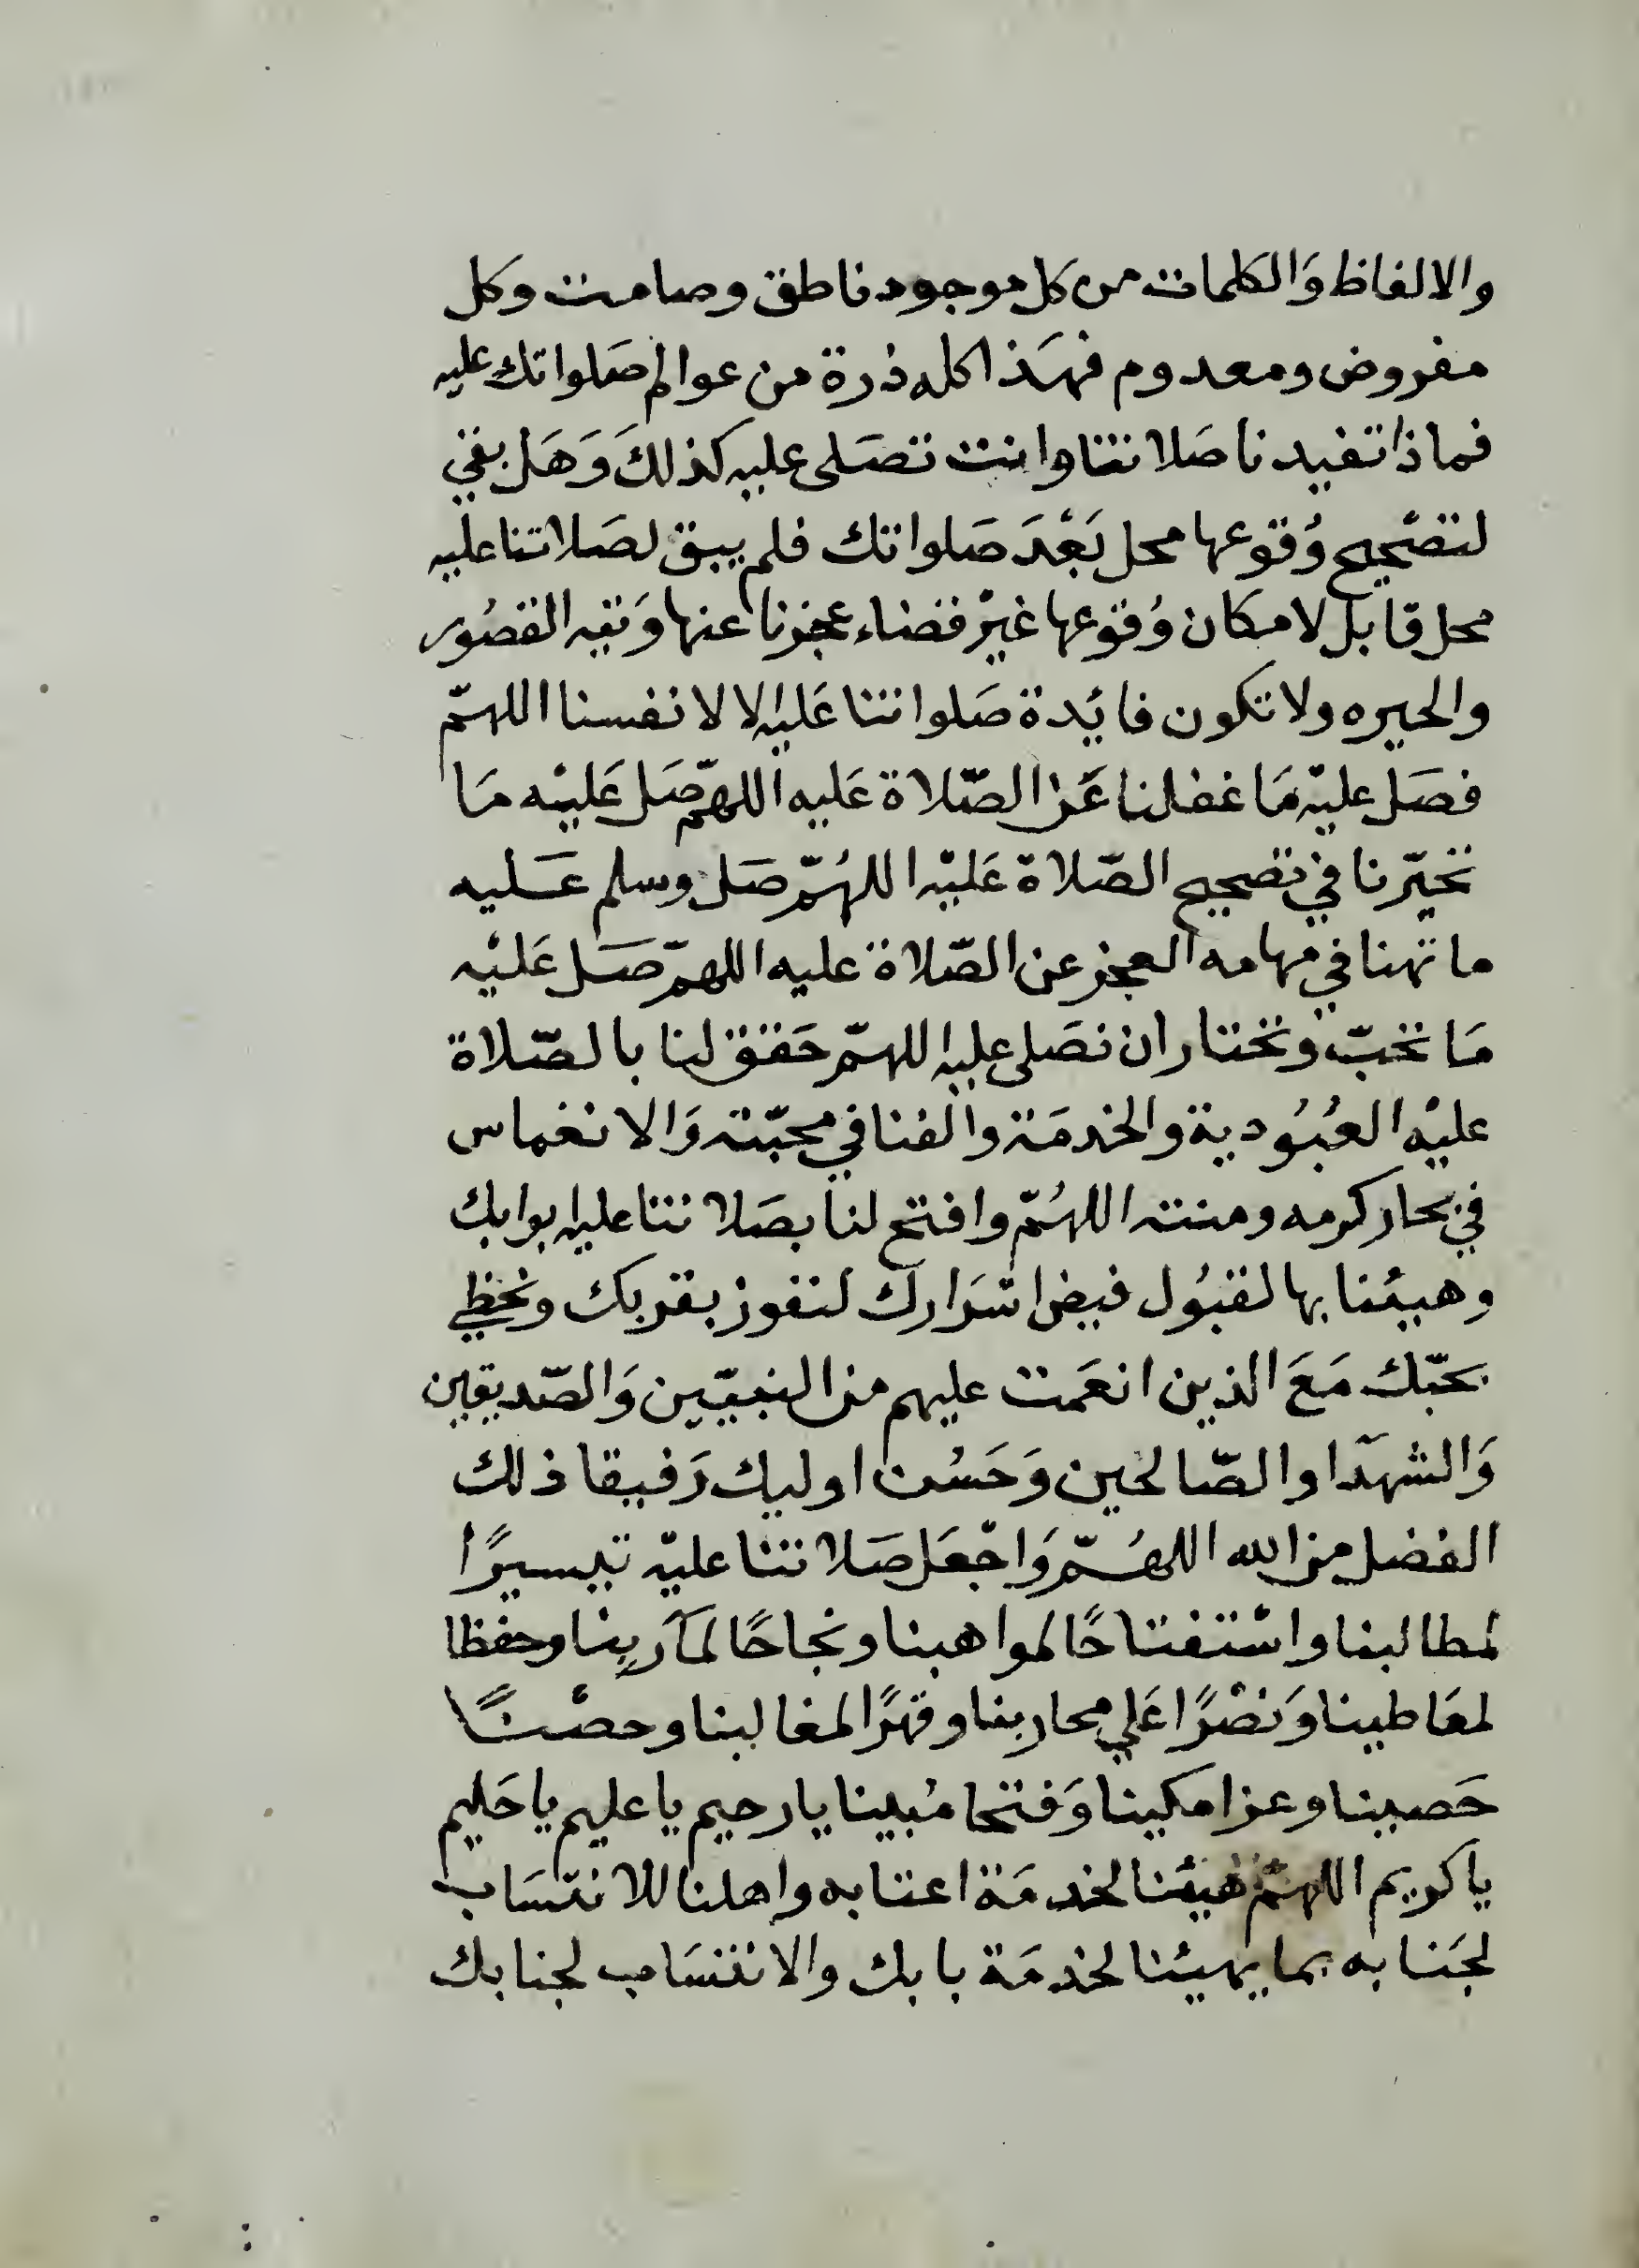 والالفاظ وَالكلمات من كل موجود ناطق وصامت وكل
مفروض ومعدوم فهَذا كله ذرة من عوالم صَلواتك عليه
فماذا تفيدنا صَلاتنا وانت تصَلى عليه كذلكَ وَهَل بقي
لتصْحيح وُقوعها محل بَعْدَ صَلواتك فلم يبق لصَلاتنا عليه
محل قابل لامكان وُقوعها غيْر فضاء عجزنا عنها وَتيه القصُور
والحيره ولا تكون فايُدة صَلواتنا عَليه الا لانفسنا اللهمّ
فصَل عليْه مَا غفلنا عَن الصّلاة عَليه اللهمّ صَل عَليْه مَا
تحيّرنا في تصحيح الصّلاة عَليْه اللهُمّ صَل وسلم عَليه
ما تهنا في مهامه العجز عن الصّلاة عليه اللهمّ صَل عَليْه
مَا نحبّ ونختار ان نصَلى عليه اللهمّ حَقق لنا بالصّلاة
عليْه العُبُودية والخدمَة والفنا في محبّته وَالانغماس
في بحار كرمه ومنته اللهُمّ وافتح لنا بصَلاتنا عليه ابوابك
وهيئنا بها لقبُول فيض اسْرَارك لنفوز بقربك ونحظي
بحبّك مَعَ الذين انعَمت عليهم من النبيّين وَالصّديقين
وَالشهدَآ والصّالحين وَحَسُن اوليك رَفيقا ذلك
الفضل من الله اللهُمّ وَاجْعَل صَلاتنا عليْه تيسيرًا
لمطالبنا واسْتفتاحًا لمواهبنا ونجاحًا لمآربِنا وحفظا
لمعَاطينا وَنصْرًا عَلي محاربنا وقهرًا لمغالبنا وحصْنًا
حَصينا وعزا مكينا وَفتحا مُبينا يا رحيم يا عليم يا حَليم
يا كريم اللهمّ هيئنا لخدمَة اعتابه واهلنا للانتسَاب
لجَنابه بما يهيئنا لخدمَة بابك والانتسَاب لجنابك